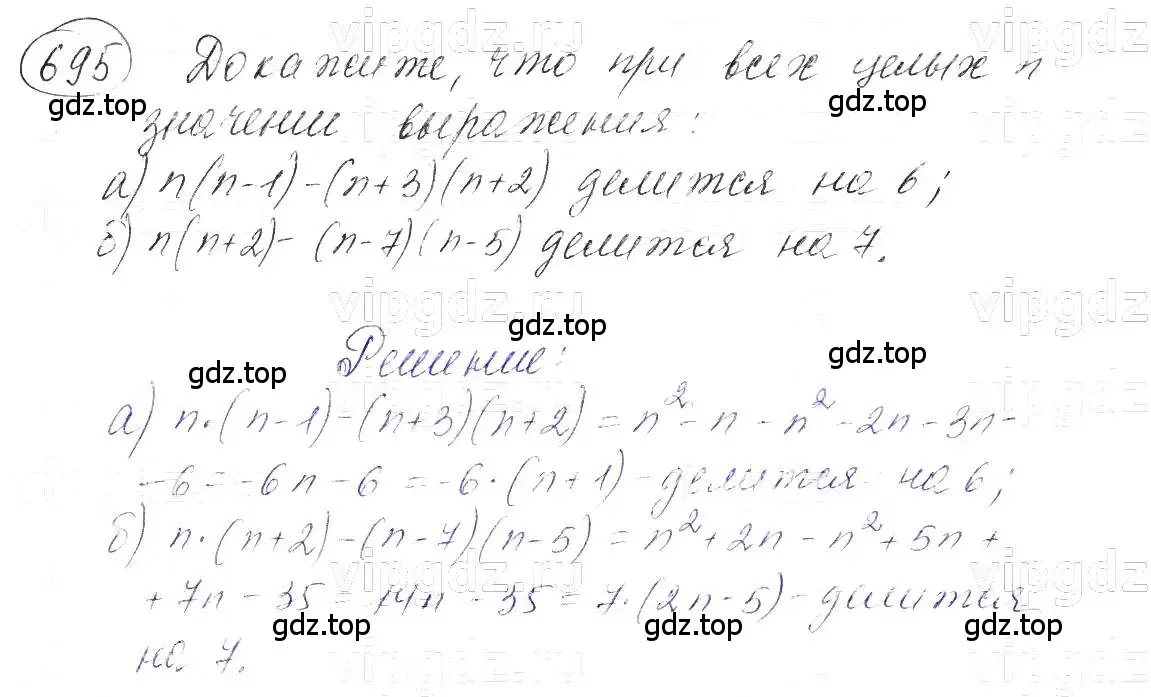 695 Докажите, что при всех целых n
значении выражения:
а) n(n-1)-(n+3)(n+2) делится на 6;
б) n(n+2)-(n-7)(n-5) делится на 7.
Решение:
а) n·(n-1)-(n+3)(n+2) = n² - n - n² - 2n - 3n -
- 6 = -6n - 6 = -6·(n+1) - делится на 6;
б) n·(n+2)-(n-7)(n-5) = n² + 2n - n² + 5n +
+ 7n - 35 = 14n - 35 = 7·(2n-5) - делится
на 7.
gdz.top
gdz.top
gdz.top
gdz.top
gdz.top
gdz.top
gdz.top
gdz.top
gdz.top
vipgdz.ru
vipgdz.ru
vipgdz.ru
vipgdz
vipgdz